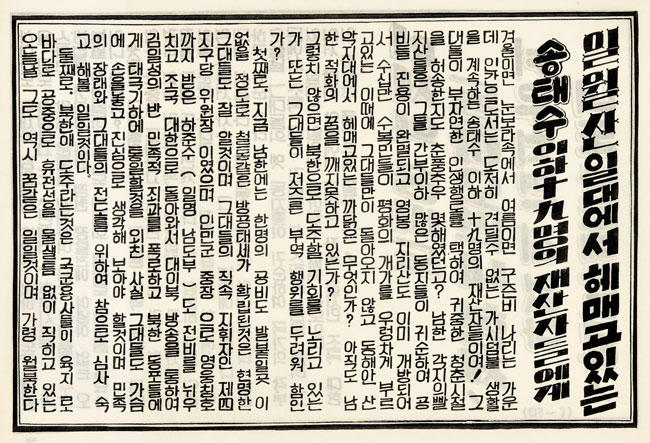 일월산 일대에서 헤매고있는
송태수 이하 十九명의 재산자들에게
겨울이면 눈보라속에서 여름이면 구즌비 나리는 가운
데 인간으로서는 도저히 견딜수 없는 가시덤불 생활
을 계속하는 송태수 이하 十九명의 재산자들이여! 그
대들이 부자연한 인생행로를 택하여 귀중한 청춘시절
을 허송한지도 춘풍추우 몇해였던고? 남한 각지의 빨
지산들은 그를 간부이하 많은 동지들이 귀순하여 공
비들 진용이 완멸되고 영웅 지리산도 이미 개방되어
서 수십만 수복민들이 평화의 개가를 우렁차게 부르
고있는 이때에 그대들만이 돌아오지 않고 동해안 산
악지대에서 헤매고있는 까닭은 무엇인가? 아직도 남
한 적화의 꿈을 깨지못하고 있는가?
그렇지 않으면 북한으로 도주할 기회를 노리고 있는
가 또는 그대들이 저즈른 부역 행위를 두려워 함인
가?
첫째로 지금 남한에는 한명의 공비도 발붙일곳이
없을 정도로 철통같은 방공태세가 확립된것은 현명한
그대들도 잘 알것이며 그대들의 직속 지휘자인 제四
지구당 위원장 이었으며 인민군 중장 으로 영웅칭호
까지 받은 하준수 (일명 남도부) 도 전비를 뉘우
치고 조국 대한으로 돌아와서 대이북 방송을 통하여
김일성의 반 민족적 죄과를 폭로하고 북한 동포들에
게 태극기하에 통일할것을 외친 사실 그대들도 가슴
에 손을놓고 진심으로 생각해 보아야 할것이며 민족
의 장래와 그대들의 전도를 위하여 참으로 심사 숙
고 해볼 일일것이다.
둘째로 북한에 도주한다는것은 국군용사들이 육지로
바다로 공중으로 휴전선을 물샐틈 없이 직히고 있는
오늘날 그도 역시 꿈같은 일일것이며 가령 월북한다